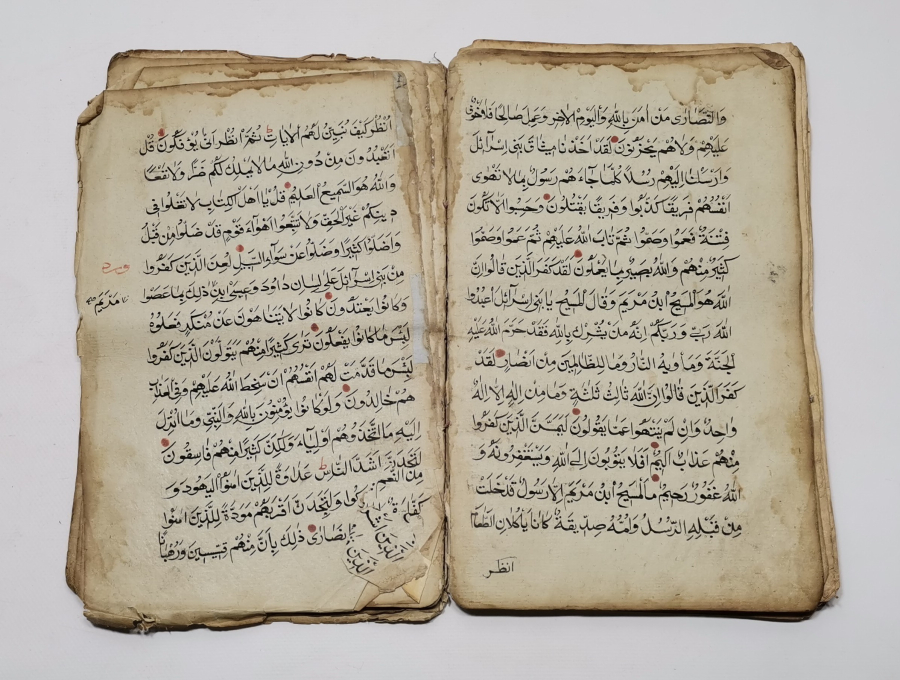 والنصارى من امن بالله واليوم الاخر وعمل صالحا فلا خوف
عليهم ولا هم يحزنون لقد اخذنا ميثاق بنى اسرائل
وارسلنا اليهم رسلا كلما جاءهم رسول بما لا تهوى
انفسهم فريقا كذبوا وفريقا يقتلون وحسبوا الا تكون
فتنة فعموا وصموا ثم تاب الله عليهم ثم عموا وصموا
كثير منهم والله بصير بما يعملون لقد كفر الذين قالوا ان
الله هو المسيح ابن مريم وقال المسيح يا بنى اسرائل اعبدوا
الله ربى وربكم انه من يشرك بالله فقد حرم الله عليه
الجنة ومأويه النار وما للظالمين من انصار لقد
كفر الذين قالوا ان الله ثالث ثلثة وما من اله الا اله
واحد وان لم ينتهوا عما يقولون ليمسن الذين كفروا
منهم عذاب اليم افلا يتوبون الى الله ويستغفرونه و
الله غفور رحيم ما المسيح ابن مريم الا رسول قد خلت
من قبله الرسل وامه صديقة كانا يأكلان الطعام
انظر
انظر كيف نبين لهم الايات ثم انظر انى يؤفكون قل
اتعبدون من دون الله ما لا يملك لكم ضرا ولا نفعا
والله هو السميع العليم قل يا اهل الكتاب لا تغلوا فى
دينكم غير الحق ولا تتبعوا اهواء قوم قد ضلوا من قبل
واضلوا كثيرا وضلوا عن سواء السبيل لعن الذين كفروا
من بنى اسرائل على لسان داود وعيسى ابن مريم ذلك بما عصوا
وكانوا يعتدون كانوا لا يتناهون عن منكر فعلوه
لبئس ما كانوا يفعلون ترى كثيرا منهم يتولون الذين كفروا
لبئس ما قدمت لهم انفسهم ان سخط الله عليهم وفى العذاب
هم خالدون ولو كانوا يؤمنون بالله والنبى وما انزل
اليه ما اتخذوهم اولياء ولكن كثيرا منهم فاسقون
لتجدن اشد الناس عداوة للذين امنوا اليهود و
ولتجدن اقربهم مودة للذين امنوا
نصارى ذلك بان منهم قسيسين ورهبانا